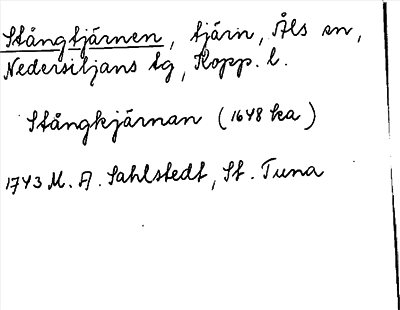 Stångtjärnen, tjärn, Åls sn,
Nedersiljans tg, Kopp. l.
Stångkjärnan (1648 ka)
1743 M. A. Sahlstedt, St. Tuna